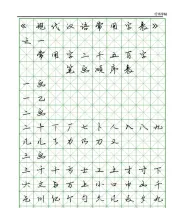 《现代汉语常用字表》
之一
常用字二千五百字
笔画顺序表
一画
一乙
二画
二十丁厂七卜人入八九
几儿了力乃刀又
三画
三于干亏士工土才寸下
大丈与万上小口巾山千